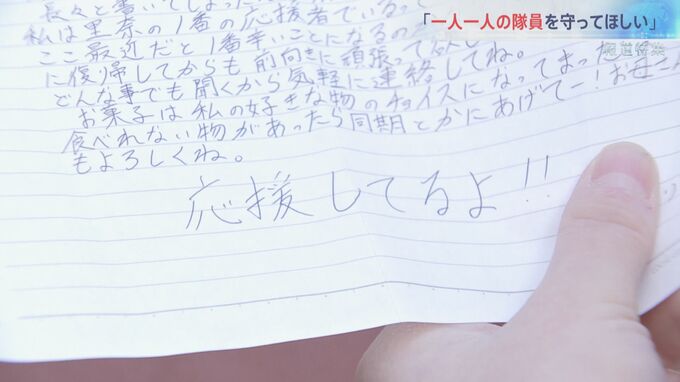 「一人一人の隊員を守ってほしい」
報道特集
長々と書いてしまった
私は里奈の1番の応援者でいるって
ここ最近だと1番辛いことになるの
に復帰してからも前向きに頑張って欲し
どんな事でも聞くから気軽に連絡してね。
お菓子は私の好きな物のチョイスになってまった
食べれない物があったら同期とかにあげてー!お母さん
もよろしくね。
応援してるよ!!